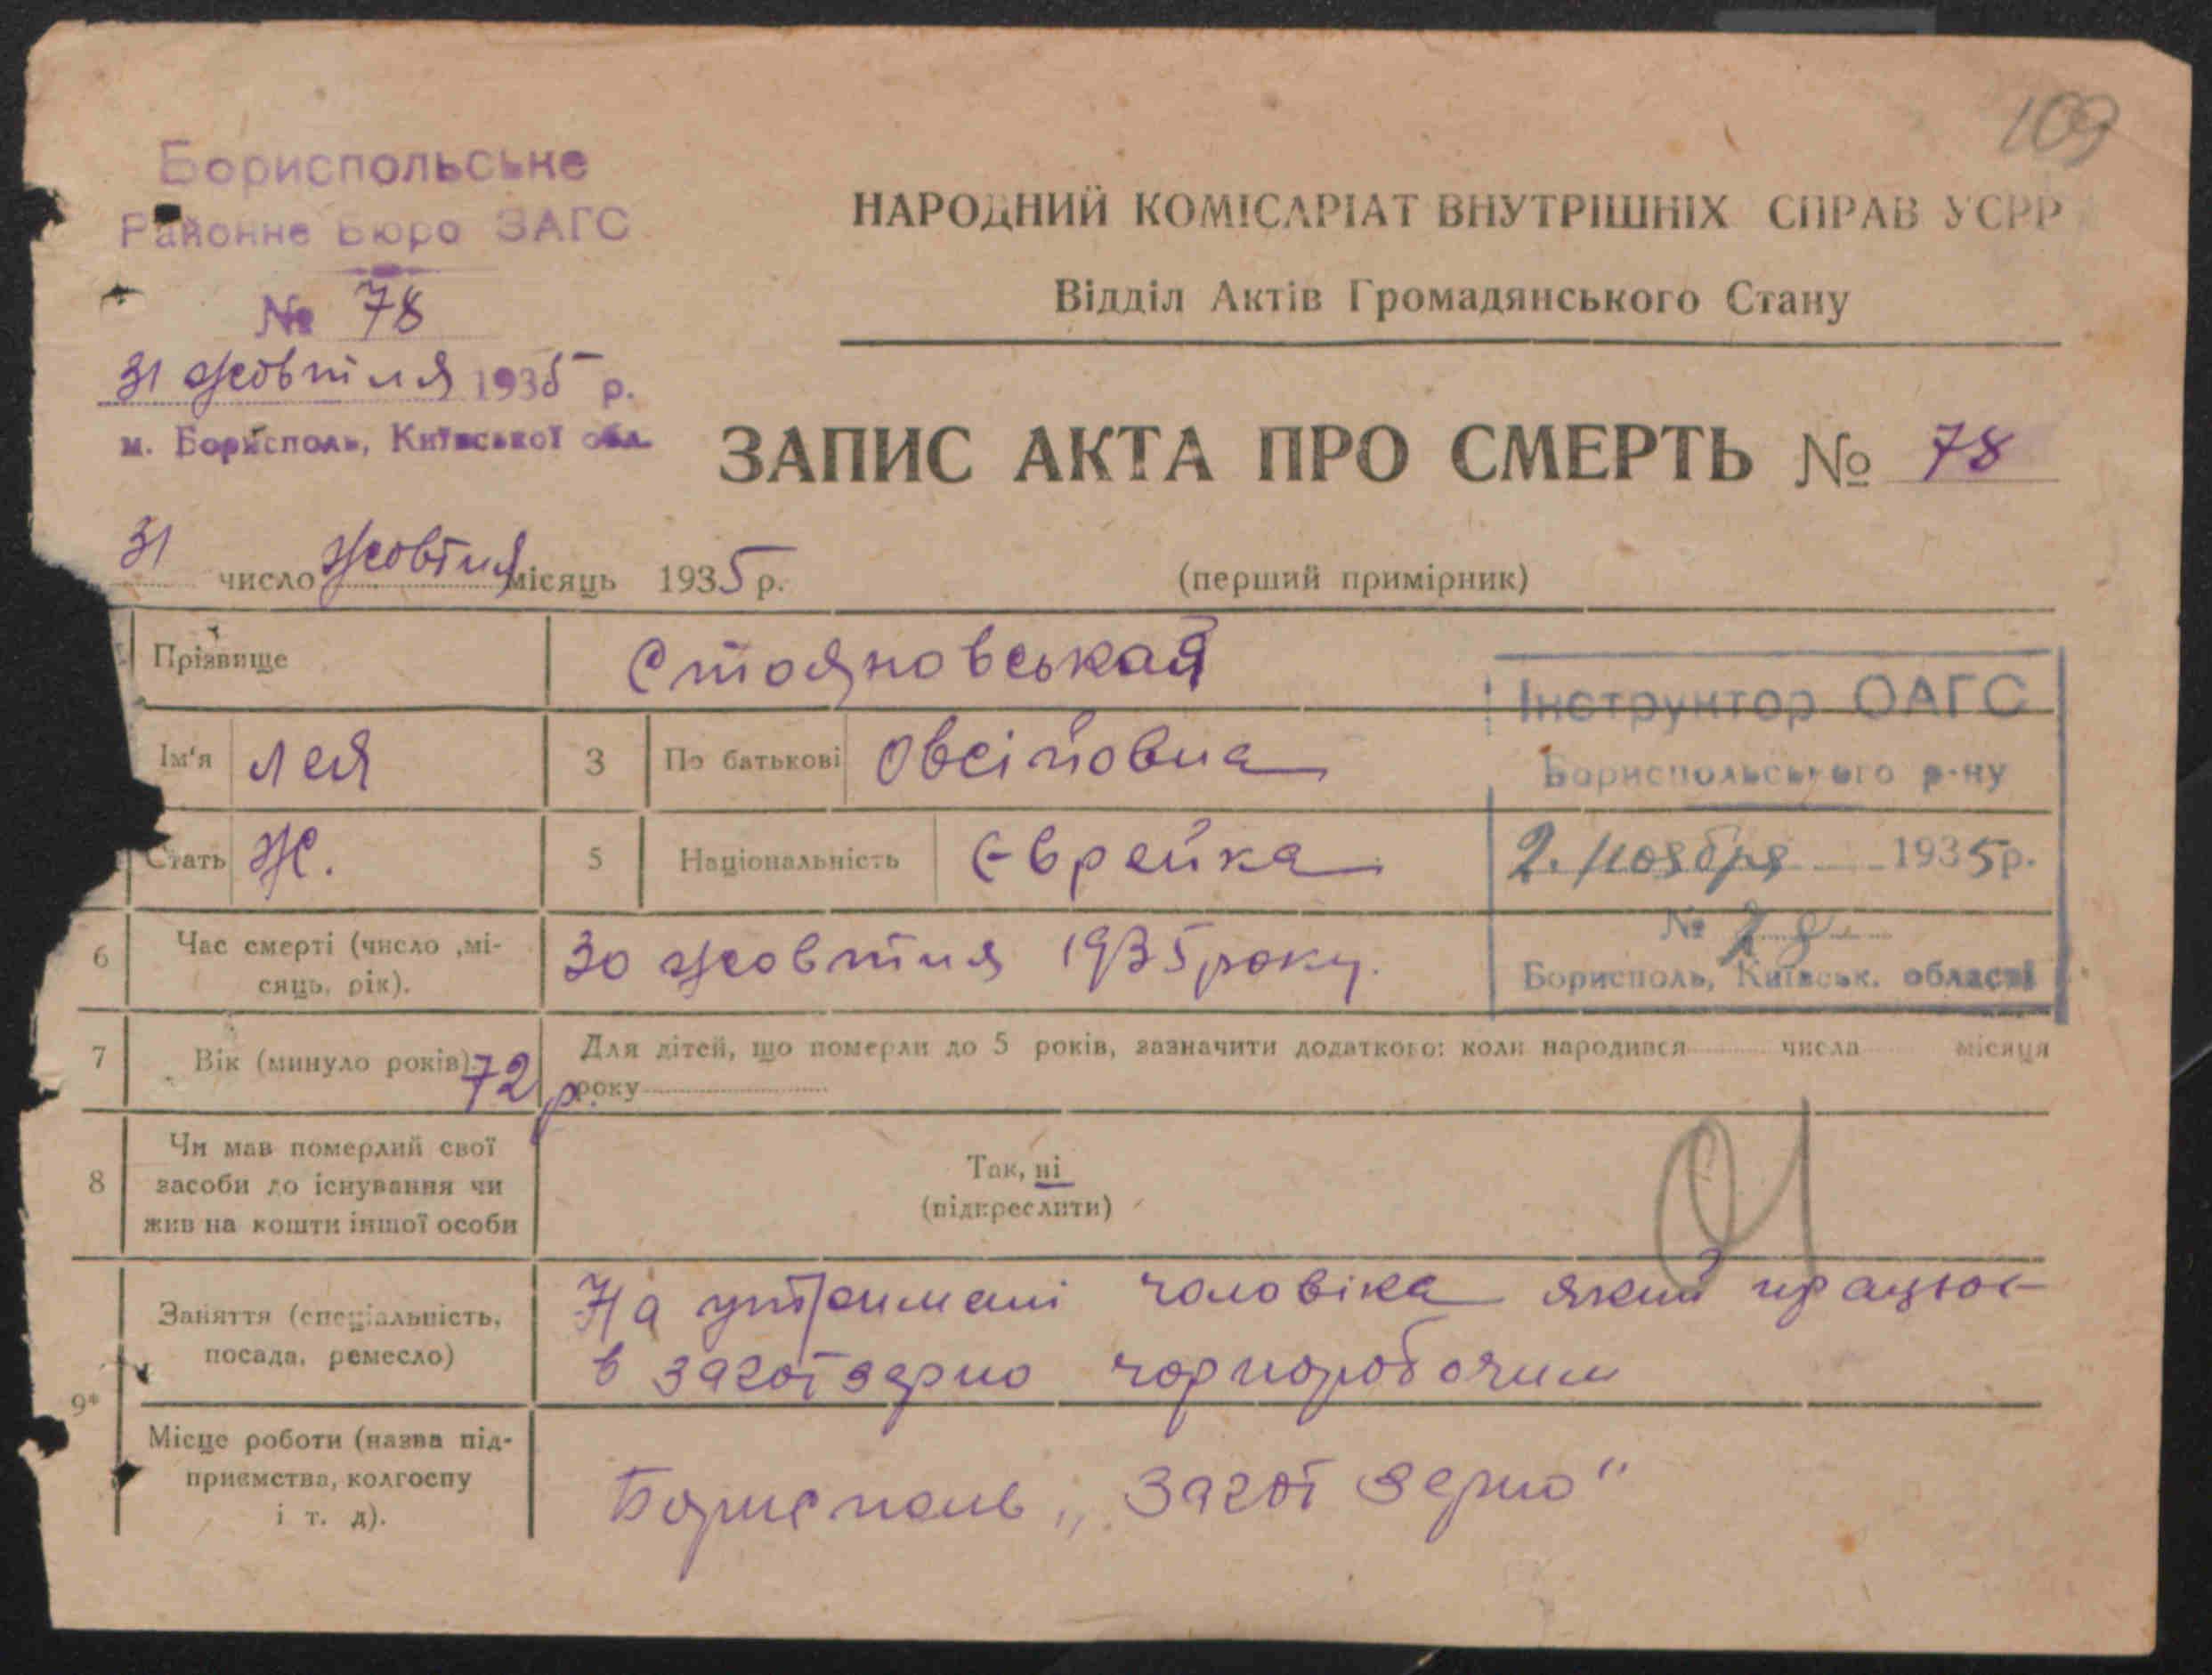 109
Бориспольське
Районне Бюро ЗАГС
№ 78
31 жовтня 1935 р.
м. Бориспіль, Київської обл.
НАРОДНИЙ КОМІСАРІАТ ВНУТРІШНІХ СПРАВ УСРР
Відділ Актів Громадянського Стану
ЗАПИС АКТА ПРО СМЕРТЬ № 78
31 число жовтня місяць 1935 р. (перший примірник)
Прізвище Стояновськая
Інструктор ОАГС
Ім'я Лея 3 По батькові Овсійовна
Бориспольського р-ну
Стать Ж. 5 Національність Єврейка
2. ноября 1935 р.
6 Час смерті (число ,мі-
сяць, рік). 30 жовтня 1935 року.
№
Борисполь, Київськ. області
7 Вік (минуло років) 72 р. Для дітей, що померли до 5 років, зазначити додатково: коли народився числа місяця
року
8 Чи мав померлий свої
засоби до існування чи
жив на кошти іншої особи
Так, ні
(підкреслити)
9*
Заняття (спеціальність,
посада, ремесло)
На утримані чоловіка який працює
в Заготзерно чорноробочим
Місце роботи (назва під-
приємства, колгоспу
і т. д).
Борисполь „Заготзерно"